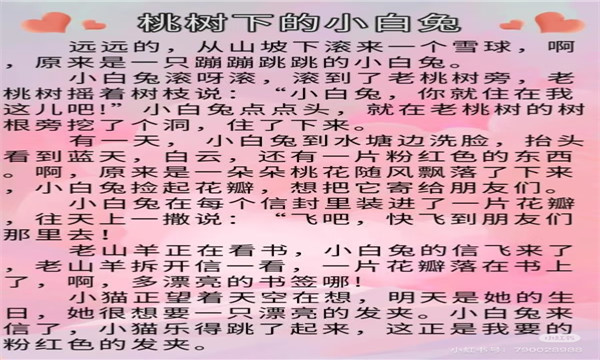 桃树下的小白兔
远远的，从山坡下滚来一个雪球，啊
，原来是一只蹦蹦跳跳的小白兔。
小白兔滚呀滚，滚到了老桃树旁，老
桃树摇着树枝说：“小白兔，你就住在我
这儿吧!”小白兔点点头，就在老桃树的树
根旁挖了个洞，住了下来。
有一天，小白兔到水塘边洗脸，抬头
看到蓝天，白云，还有一片粉红色的东西
。啊，原来是一朵朵桃花随风飘落了下来
，小白兔捡起花瓣，想把它寄给朋友们。
小白兔在每个信封里装进了一片花瓣
，往天上一撒说：“飞吧，快飞到朋友们
那里去！
老山羊正在看书，小白兔的信飞来了
，老山羊拆开信一看，一片花瓣落在书上
了，啊，多漂亮的书签哪!
小猫正望着天空在想，明天是她的生
日，她很想要一只漂亮的发夹。小白兔来
信了，小猫乐得跳了起来，这正是我要的
粉红色的发夹。
小红书
小红书号：790028985